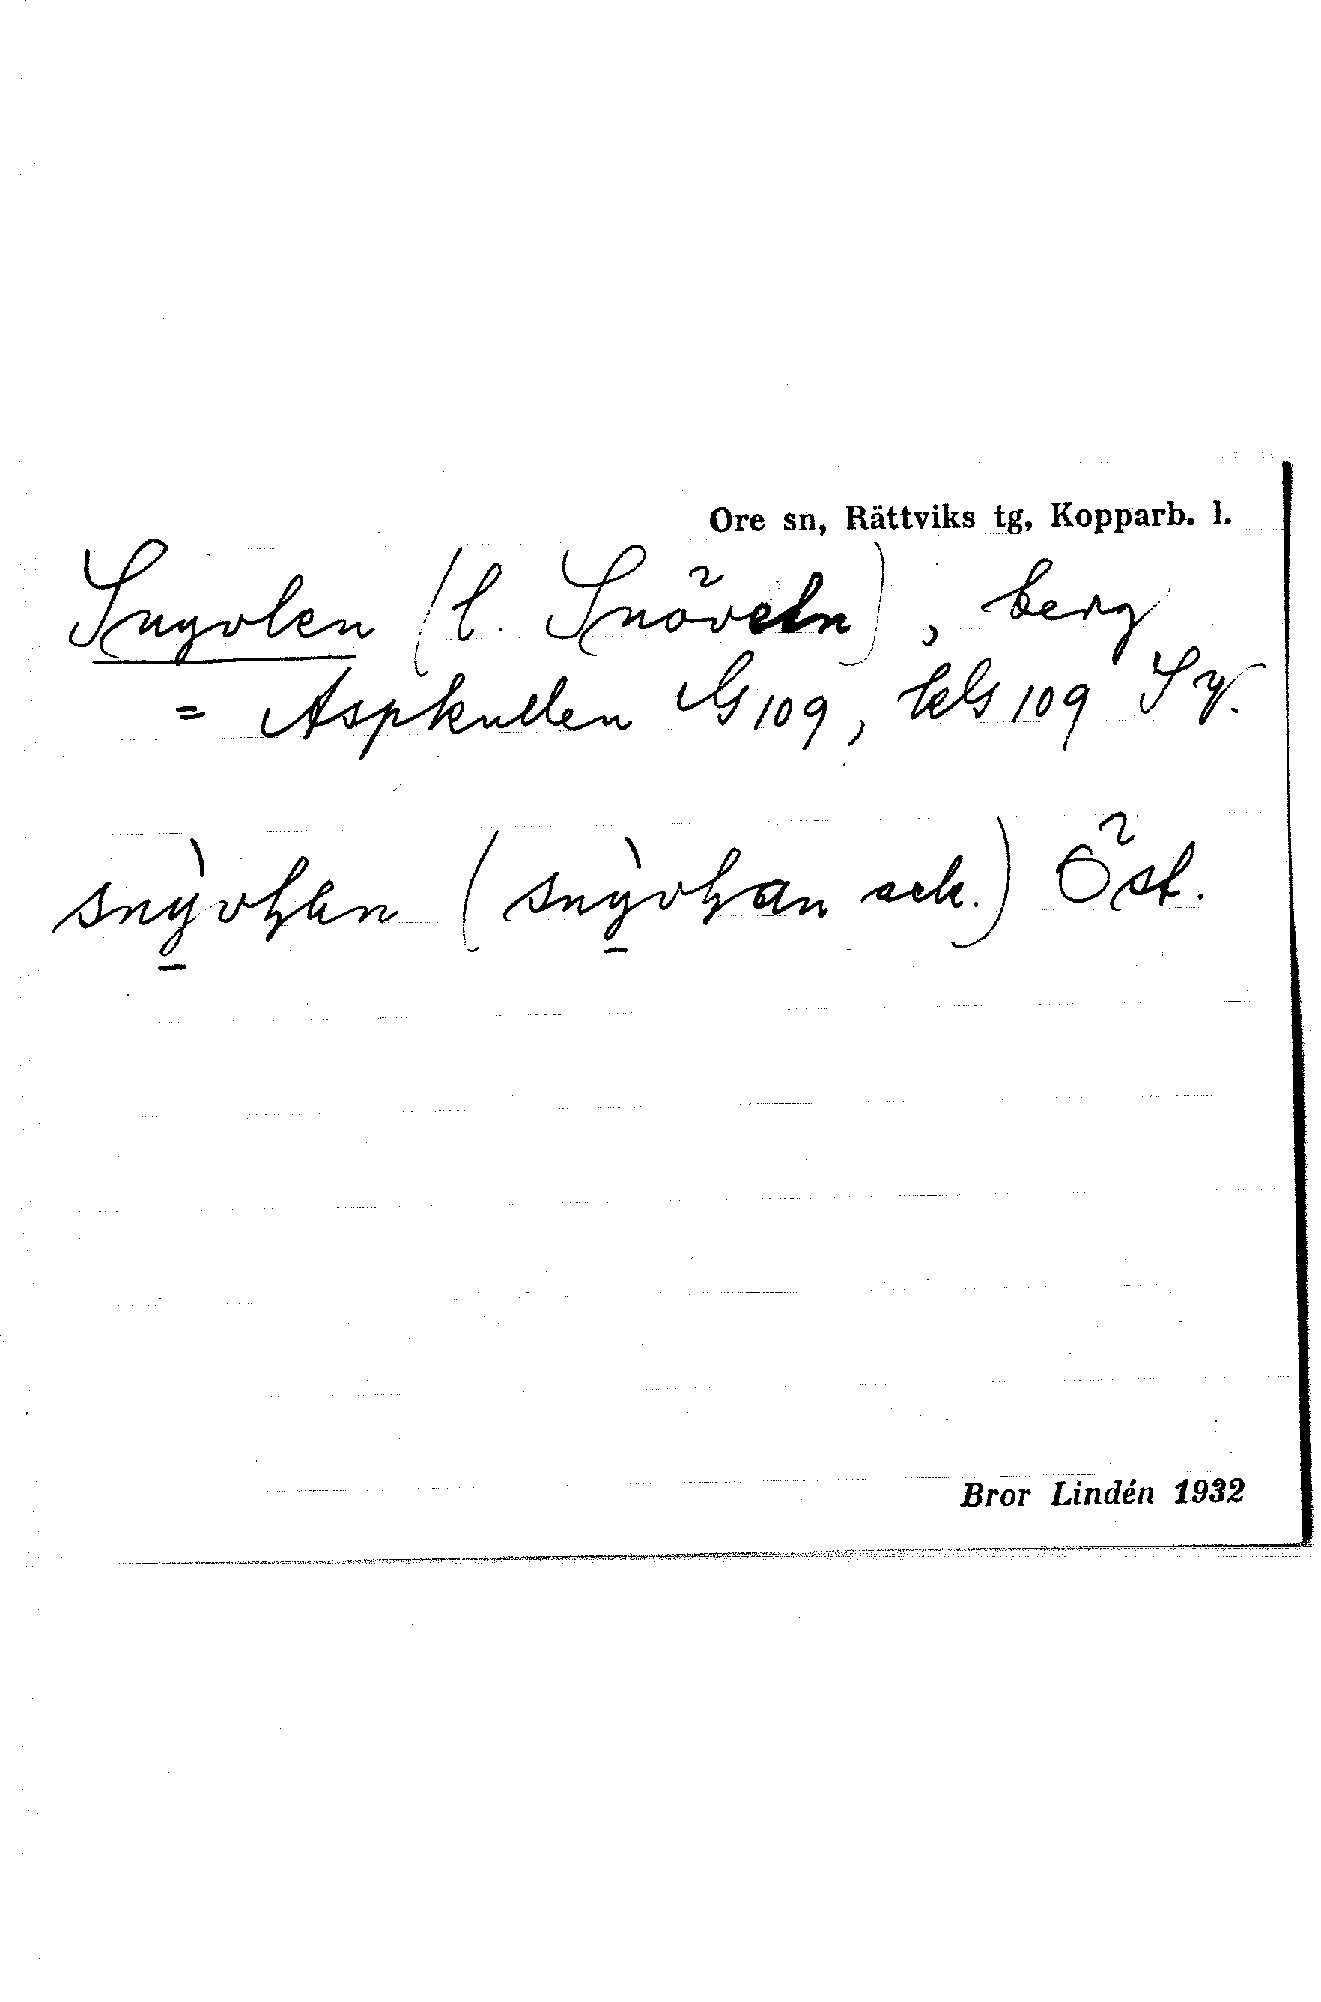 Ore sn, Rättviks tg, Kopparb. l.
Snyvlen (l. Snöveln), berg
= Aspkullen G 109, kls 109 Sy.
snỳvḷän (snỳvḷan ack.) Öst.
Bror Lindén 1932